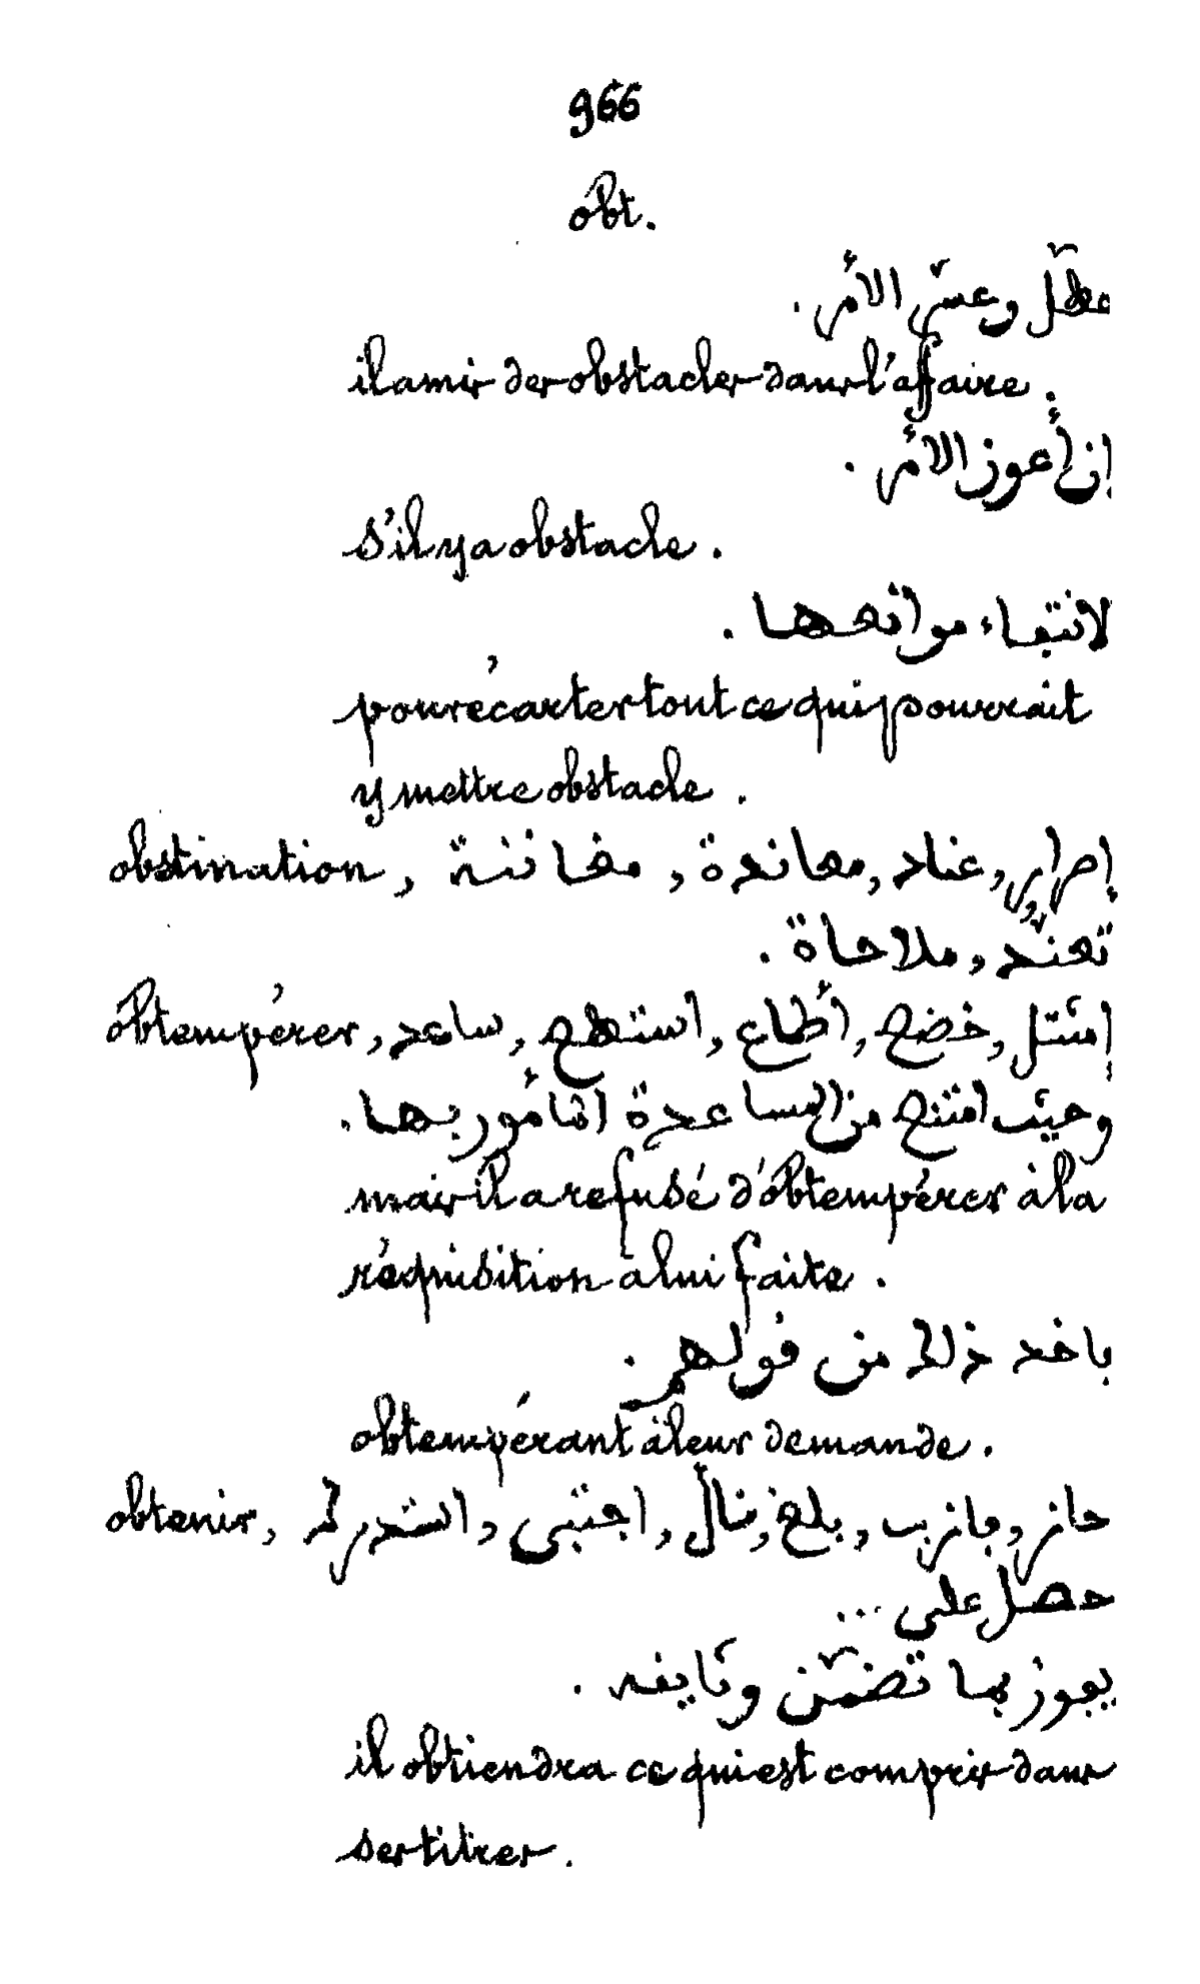 966
obt.
عطّل وعسّر الأمر.
il a mis des obstacles dans l'affaire.
إن أعوز الأمر.
s'il y a obstacle.
لانتفاء موانعها.
pour écarter tout ce qui pourrait
y mettre obstacle.
obstination, إصرار, عناد, معاندة, مفاتنة
تعنّد, ملاحاة.
obtempérer, إمتثل, خضع, أطاع, استطع, ساعد
وحيث امتنع من المساعدة المأمور بها.
mais il a refusé d'obtempérer à la
réquisition à lui faite.
باخد ذلك من قولهم.
obtempérant à leur demande.
obtenir, حاز, فاز ب, بلغ, نال, اجتنى, استدرك
حصل على ...
يفوز بما تضمّن وثايقه.
il obtiendra ce qui est compris dans
ses titres.